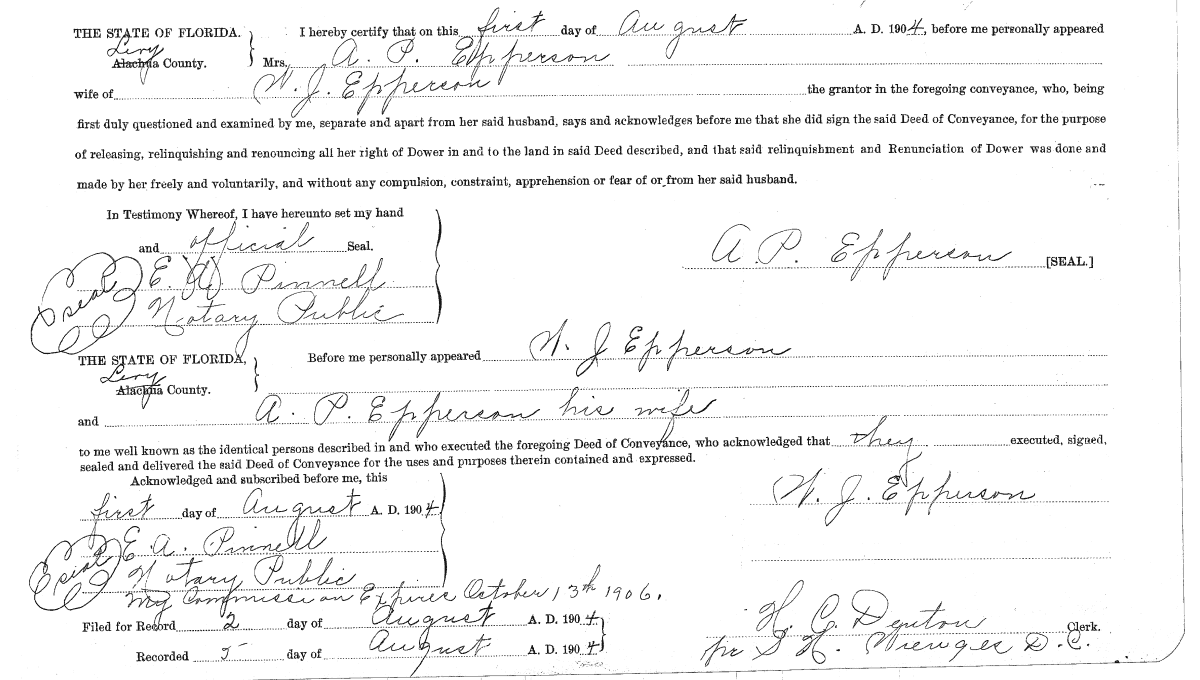 THE STATE OF FLORIDA. I hereby certify that on this first day of August A. D. 1904, before me personally appeared
Levy
Alachua County. Mrs. A. P. Epperson
wife of W. J. Epperson the grantor in the foregoing conveyance, who, being
first duly questioned and examined by me, separate and apart from her said husband, says and acknowledges before me that she did sign the said Deed of Conveyance, for the purpose
of releasing, relinquishing and renouncing all her right of Dower in and to the land in said Deed described, and that said relinquishment and Renunciation of Dower was done and
made by her freely and voluntarily, and without any compulsion, constraint, apprehension or fear of or from her said husband.
In Testimony Whereof, I have hereunto set my hand
and official Seal.
A. P. Epperson [SEAL.]
seal E. A. Pinnell
Notary Public
THE STATE OF FLORIDA, Before me personally appeared W. J Epperson
Levy
Alachua County.
and A. P. Epperson his wife
to me well known as the identical persons described in and who executed the foregoing Deed of Conveyance, who acknowledged that they executed, signed,
sealed and delivered the said Deed of Conveyance for the uses and purposes therein contained and expressed.
Acknowledged and subscribed before me, this
W. J. Epperson
first day of August A. D. 1904
seal E. A. Pinnell
Notary Public
My Commission Expires October 13th 1906.
Filed for Record 2 day of August A. D. 1904
H. C. Denton Clerk.
Recorded 5 day of August A. D. 1904
pr S. H. Wienges D. C.